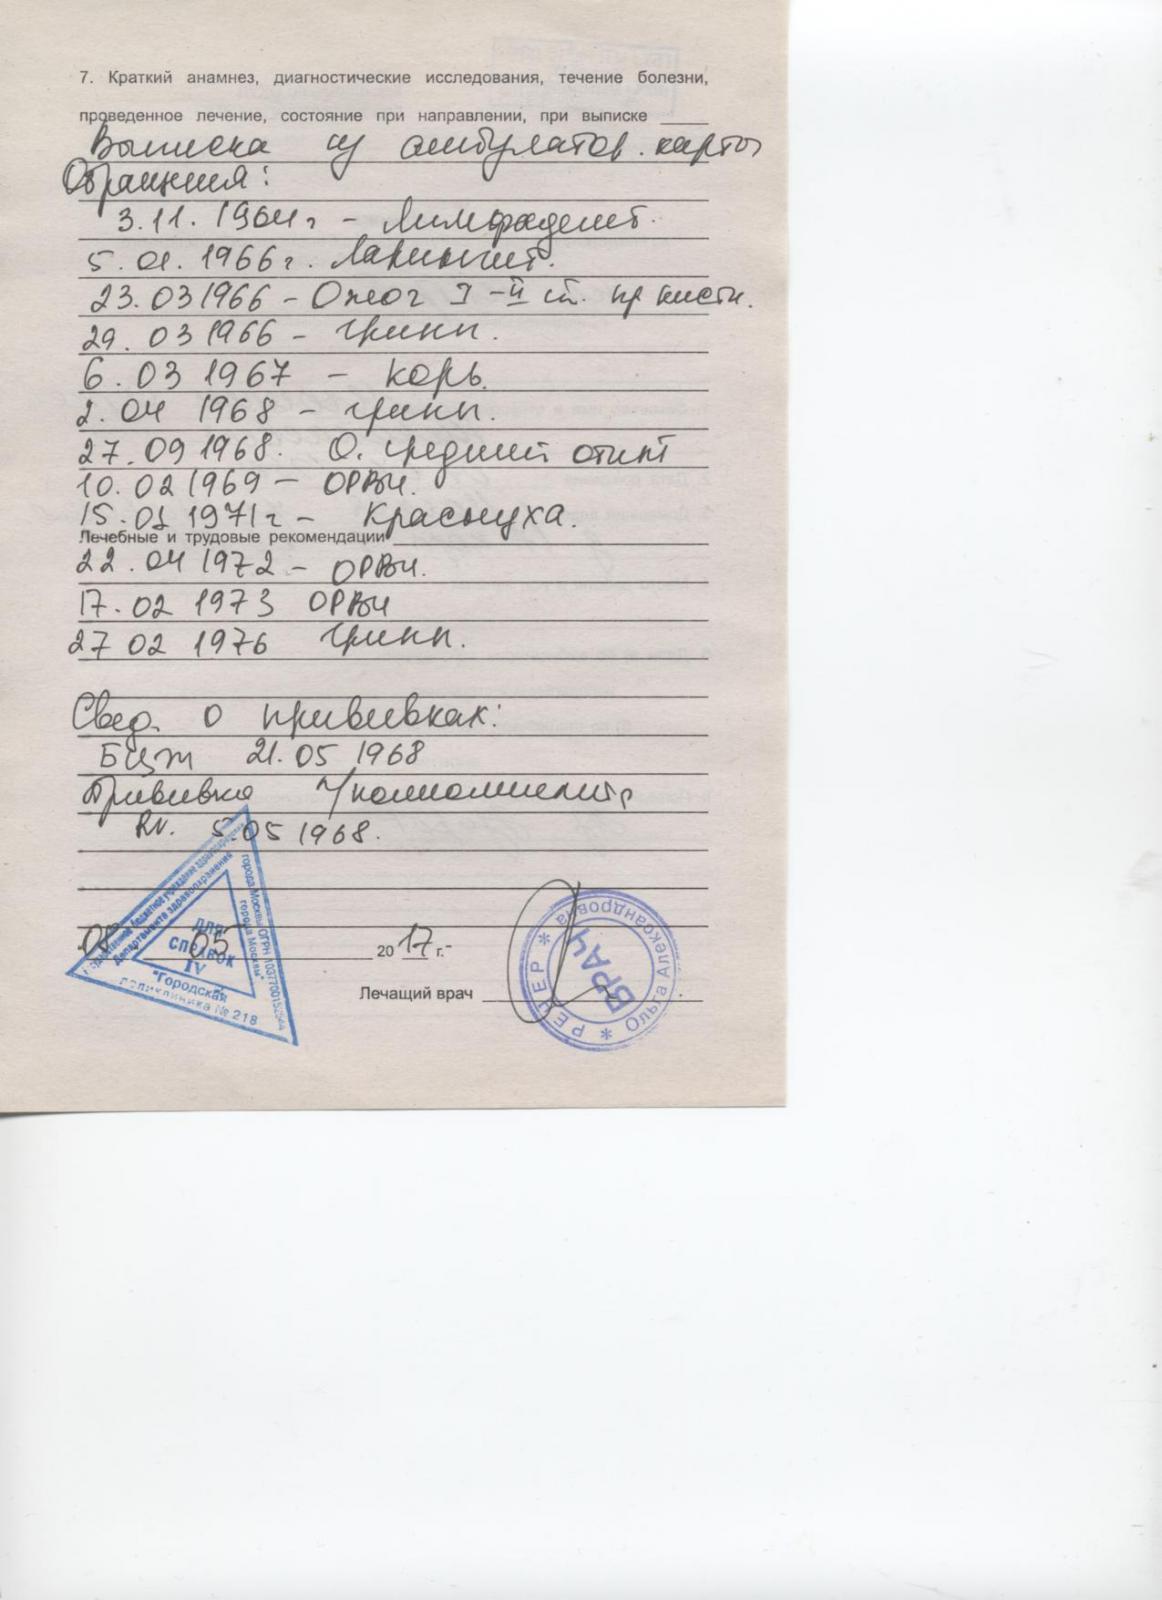 7. Краткий анамнез, диагностические исследования, течение болезни,
проведенное лечение, состояние при направлении, при выписке
Выписка из амбулатор. карты
Обращения:
3.11. 1964г - Лимфаденит.
5. 01. 1966г. Ларингит.
23. 03 1966 - Ожог I-II ст. пр кисти.
29. 03 1966 - грипп.
6. 03 1967 - корь.
2. 04 1968 - грипп.
27. 09 1968. О. средний отит
10. 02 1969 - ОРВИ.
15. 01 1971г - Краснуха.
Лечебные и трудовые рекомендации
22. 04 1972 - ОРВИ.
17. 02 1973 ОРВИ
27 02 1976 грипп.
Свед. о прививках:
БЦЖ 21. 05 1968
Прививка п/полиомиелита
RV. 5.05 1968.
05 2017 г.
Лечащий врач
ДЛЯ
СПРАВОК
IV
"Городская
поликлиника № 218
Департамента здравоохранения
города Москвы"
города Москвы ОГРН
РЕЦЕР * Ольга Александровна *
ВРАЧ